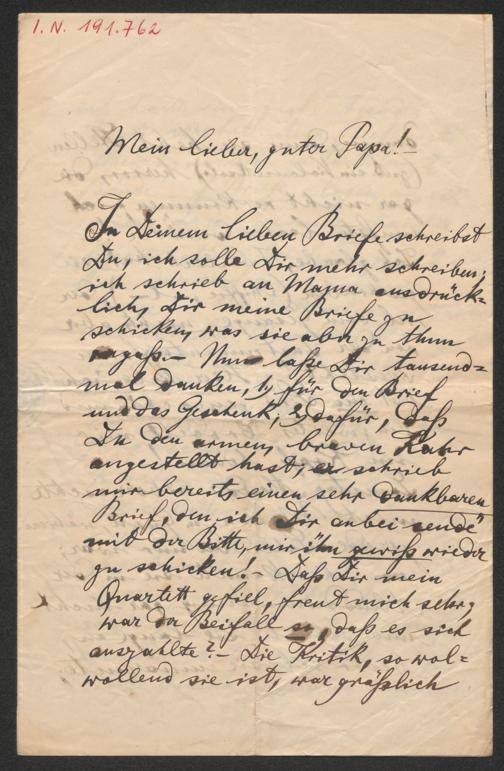 I. N. 191.762
Mein lieber, guter Papa! –
In Deinem lieben Briefe schreibst
Du, ich solle Dir mehr schreiben;
ich schrieb an Mama ausdrück=
lich, Dir meine Briefe zu
schicken, was sie aber zu thun
vergaß. – Nun laße Dir tausend=
mal danken, 1) für den Brief
und das Geschenk; 2) dafür, daß
Du den armen, braven Kahr
angestellt hast; er schrieb
mir bereits einen sehr dankbaren
Brief, den ich Dir anbei sende
mit der Bitte, mir ihn gewiß wieder
zu schicken! – Daß Dir mein
Quartett gefiel, freut mich sehr;
war der Beifall so, daß es sich
auszahlte? – Die Kritik, so wol=
wollend sie ist, war gräßlich